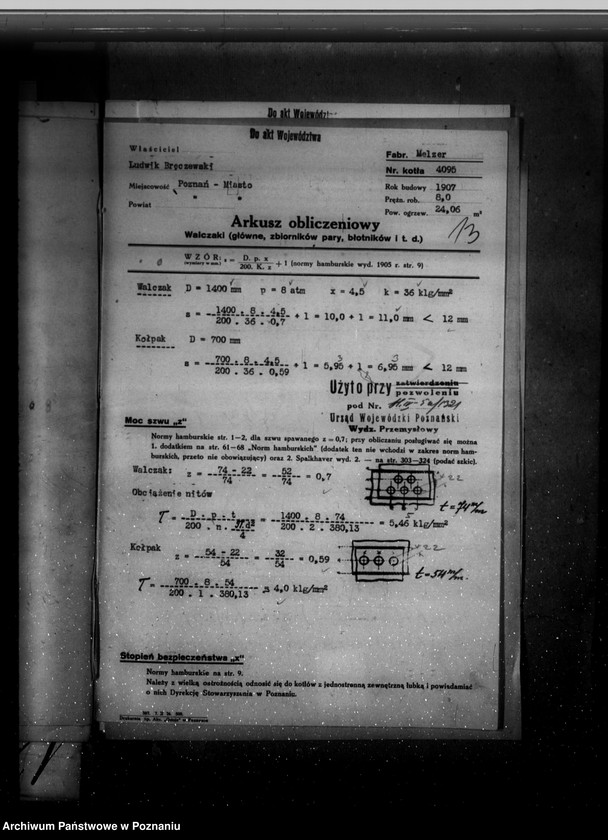 Do akt Wojewódz
Do akt Województwa
Właściciel
Ludwik Bręczewski
Miejscowość Poznań - Miasto
Powiat
Fabr. Melzer
Nr. kotła 4095
Rok budowy 1907
Pręż. rob. 8,0
Pow. ogrzew. 24,06 m²
Arkusz obliczeniowy
Walczaki (główne, zbiorników pary, błotników i t. d.)
13
WZÓR: s = D. p. x / 200. K. z + 1 (normy hamburskie wyd. 1905 r. str. 9)
(wymiary w mm.)
Walczak D = 1400 mm p = 8 atm x = 4,5 k = 36 klg/mm²
s = 1400 . 8 . 4,5 / 200 . 36 . 0,7 + 1 = 10,0 + 1 = 11,0 mm < 12 mm
Kołpak D = 700 mm
s = 700 . 8 . 4,5 / 200 . 36 . 0,59 + 1 = 5,95 + 1 = 6,95 mm < 12 mm
Użyto przy zatwierdzeniu
pozwoleniu
pod Nr.
Urząd Wojewódzki Poznański
Wydz. Przemysłowy
Moc szwu „z"
Normy hamburskie str. 1–2, dla szwu spawanego z = 0,7; przy obliczaniu posługiwać się można
1. dodatkiem na str. 61–68 „Norm hamburskich" (dodatek ten nie wchodzi w zakres norm ham-
burskich, przeto nie obowiązujący) oraz 2. Spalkhaver wyd. 2. — na str. 303—324 (podać szkic).
Walczak: z = 74 - 22 / 74 = 52 / 74 = 0,7
x 22
t = 74 m/m
Obciążenie nitów
T = D . p . t / 200 . n . πd² / 4 = 1400 . 8 . 74 / 200 . 2 . 380,13 = 5,46 klg/mm²
Kołpak z = 54 - 22 / 54 = 32 / 54 = 0,59
x 22
t = 54 m/m.
T = 700 . 8 . 54 / 200 . 1 . 380,13 = 4,0 klg/mm²
Stopień bezpieczeństwa „x"
Normy hamburskie na str. 9.
Należy z wielką ostrożnością odnosić się do kotłów z jednostronną zewnętrzną łubką i powiadamiać
o nich Dyrekcję Stowarzyszenia w Poznaniu.
Archiwum Państwowe w Poznaniu